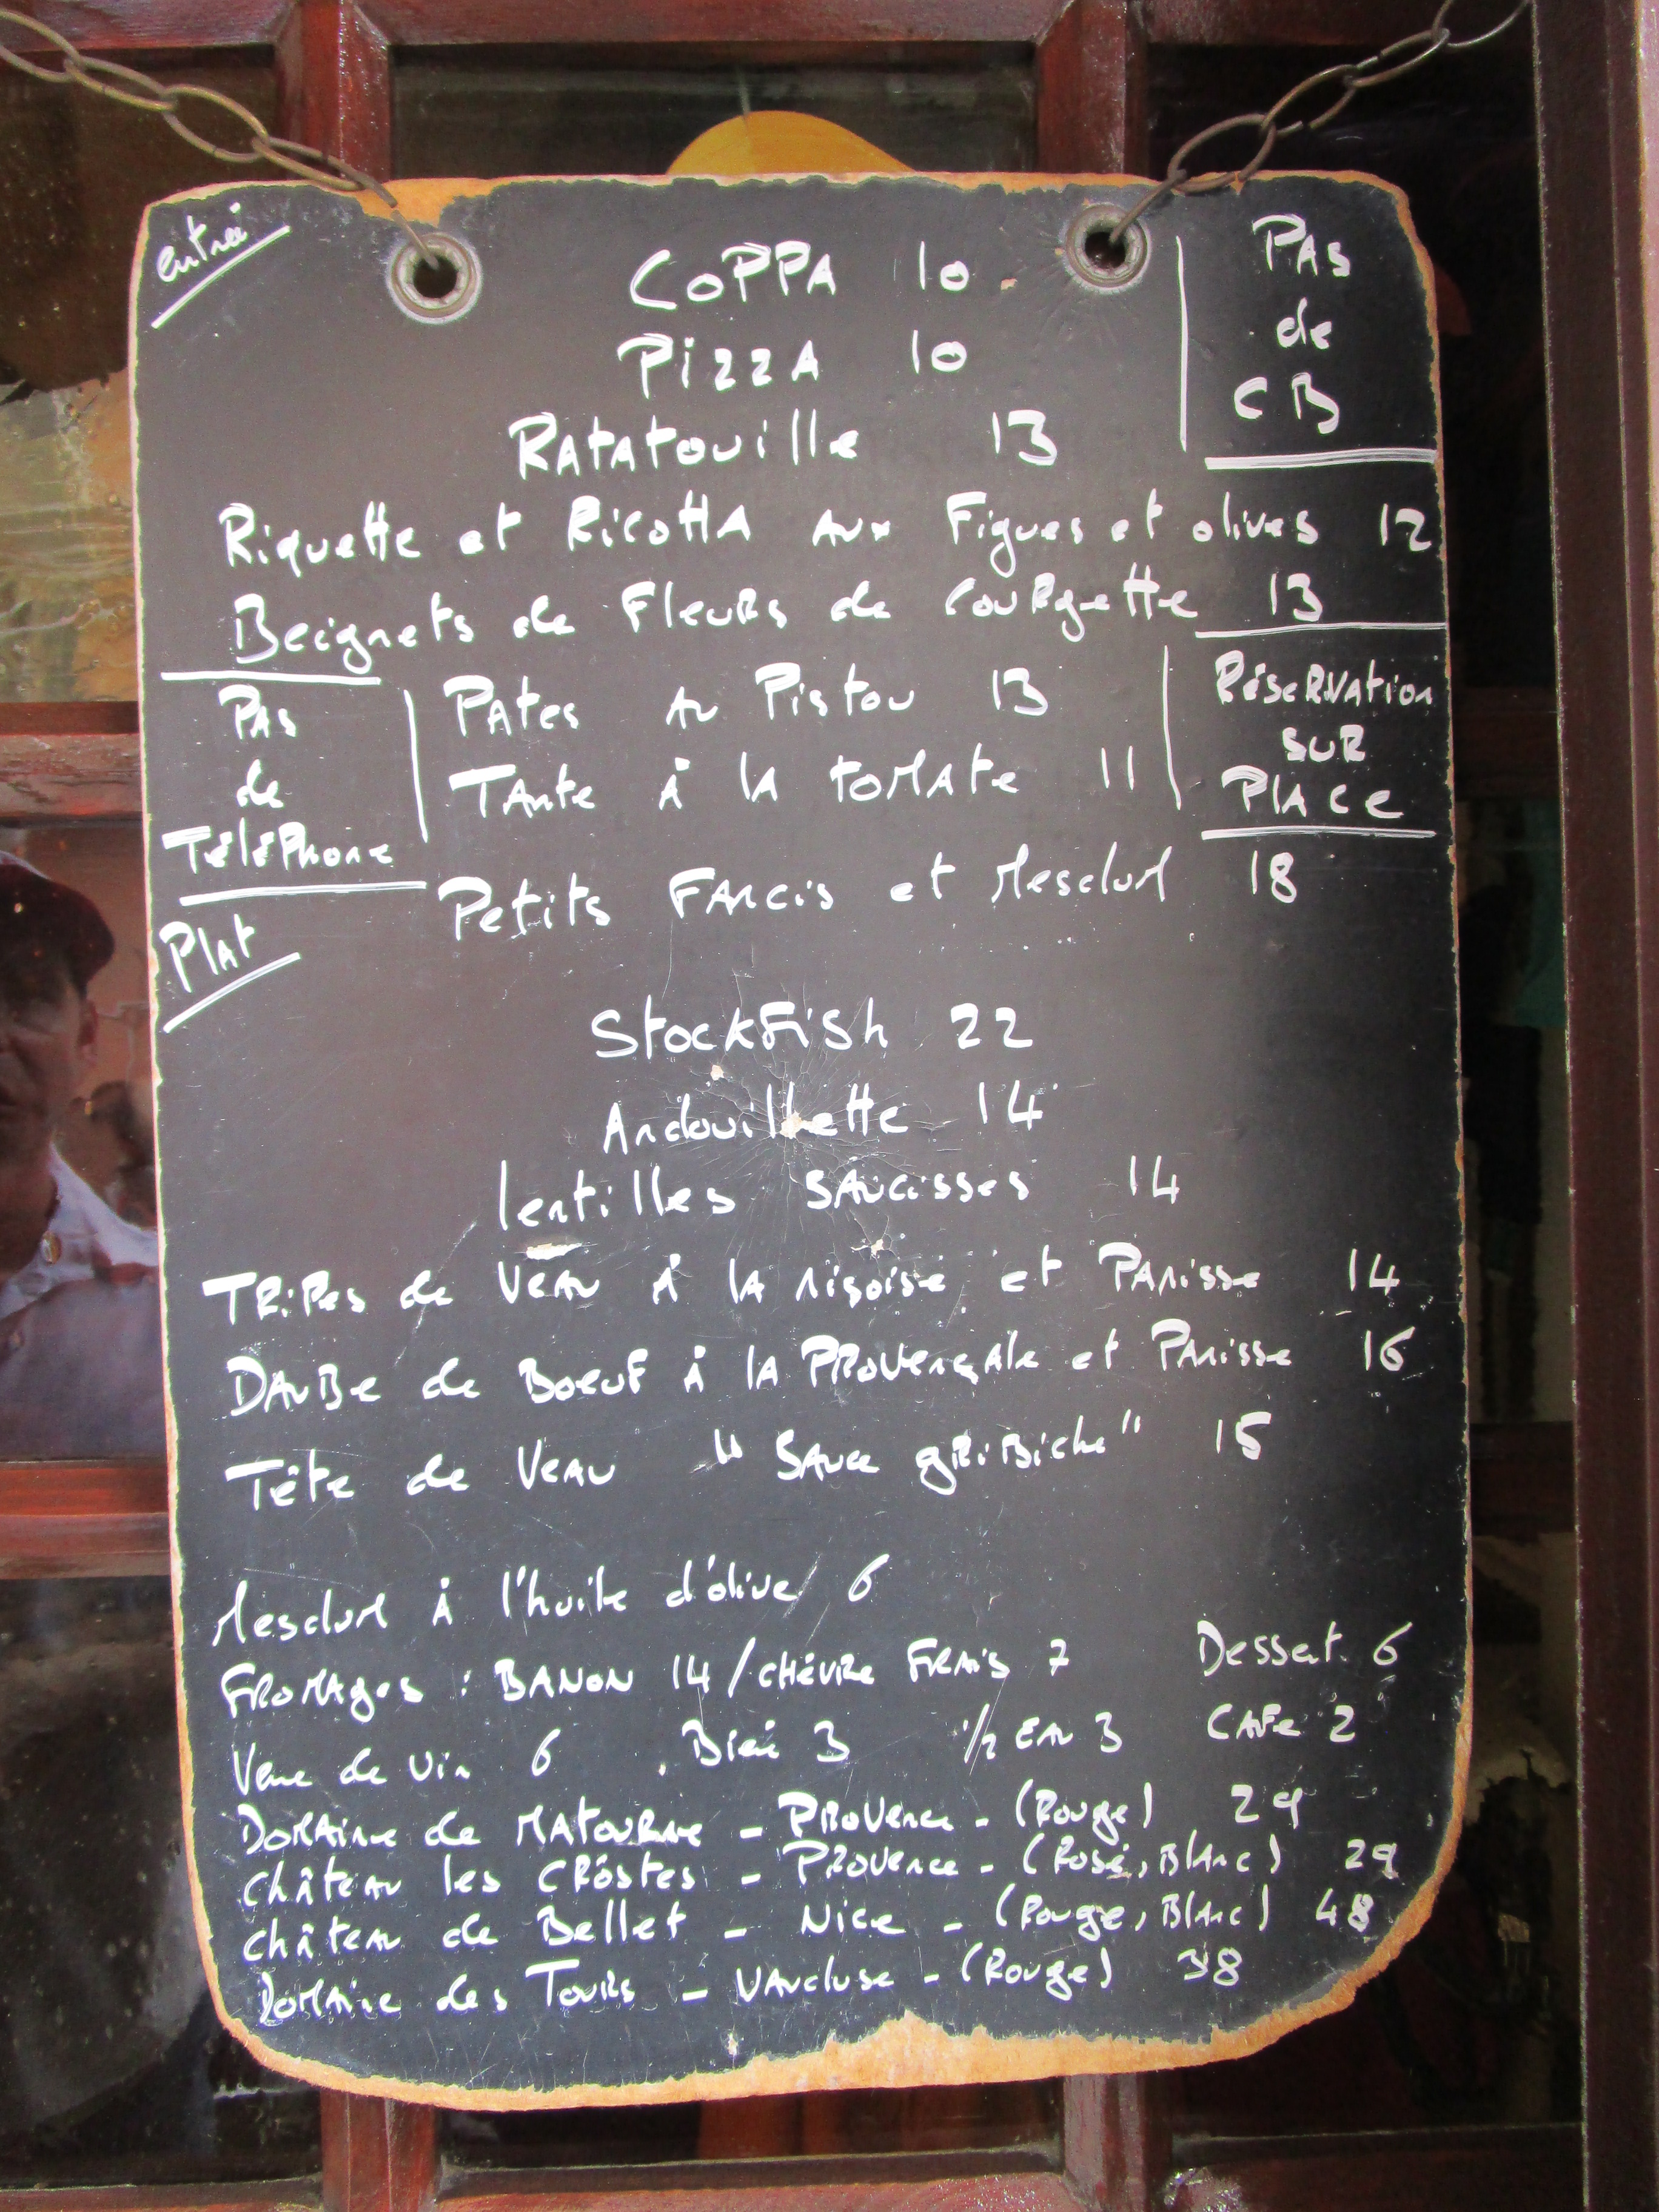 entrée
COPPA 10
PAS
de
CB
PiZZA 10
RATATouille 13
Riquette et RicottA AUX Figues et olives 12
Beignets de Fleurs de Courgette 13
PAS
de
TéléPhone
PAtes AU Pistou 13
TArte À lA toMAte 11
RéseRVAtion
SUR
PlAce
Petits FArcis et Mesclun 18
PlAt
StockFish 22
Andouillette 14
lentilles SAucisses 14
TRiPes de VeAU À lA niçoise et PAnisse 14
DAuBe de BoeuF À lA PRovençAle et PAnisse 16
Tête de VeAU "SAuce gRiBiche" 15
Mesclun À l'huile d'olive 6
FROMAges : BANON 14 / CHèVRe FRAis 7
Dessert. 6
Verre de Vin 6 . Bière 3 1/2 EAU 3 CAFe 2
DOMAine de MATOURNe - PRovence - (Rouge) 29
ChâteAU les CRôstes - PRovence - (Rosé, BlAnc) 29
ChâteAU de Bellet - Nice - (Rouge, BlAnc) 48
DOMAine des TouRs - VAucluse - (Rouge) 38